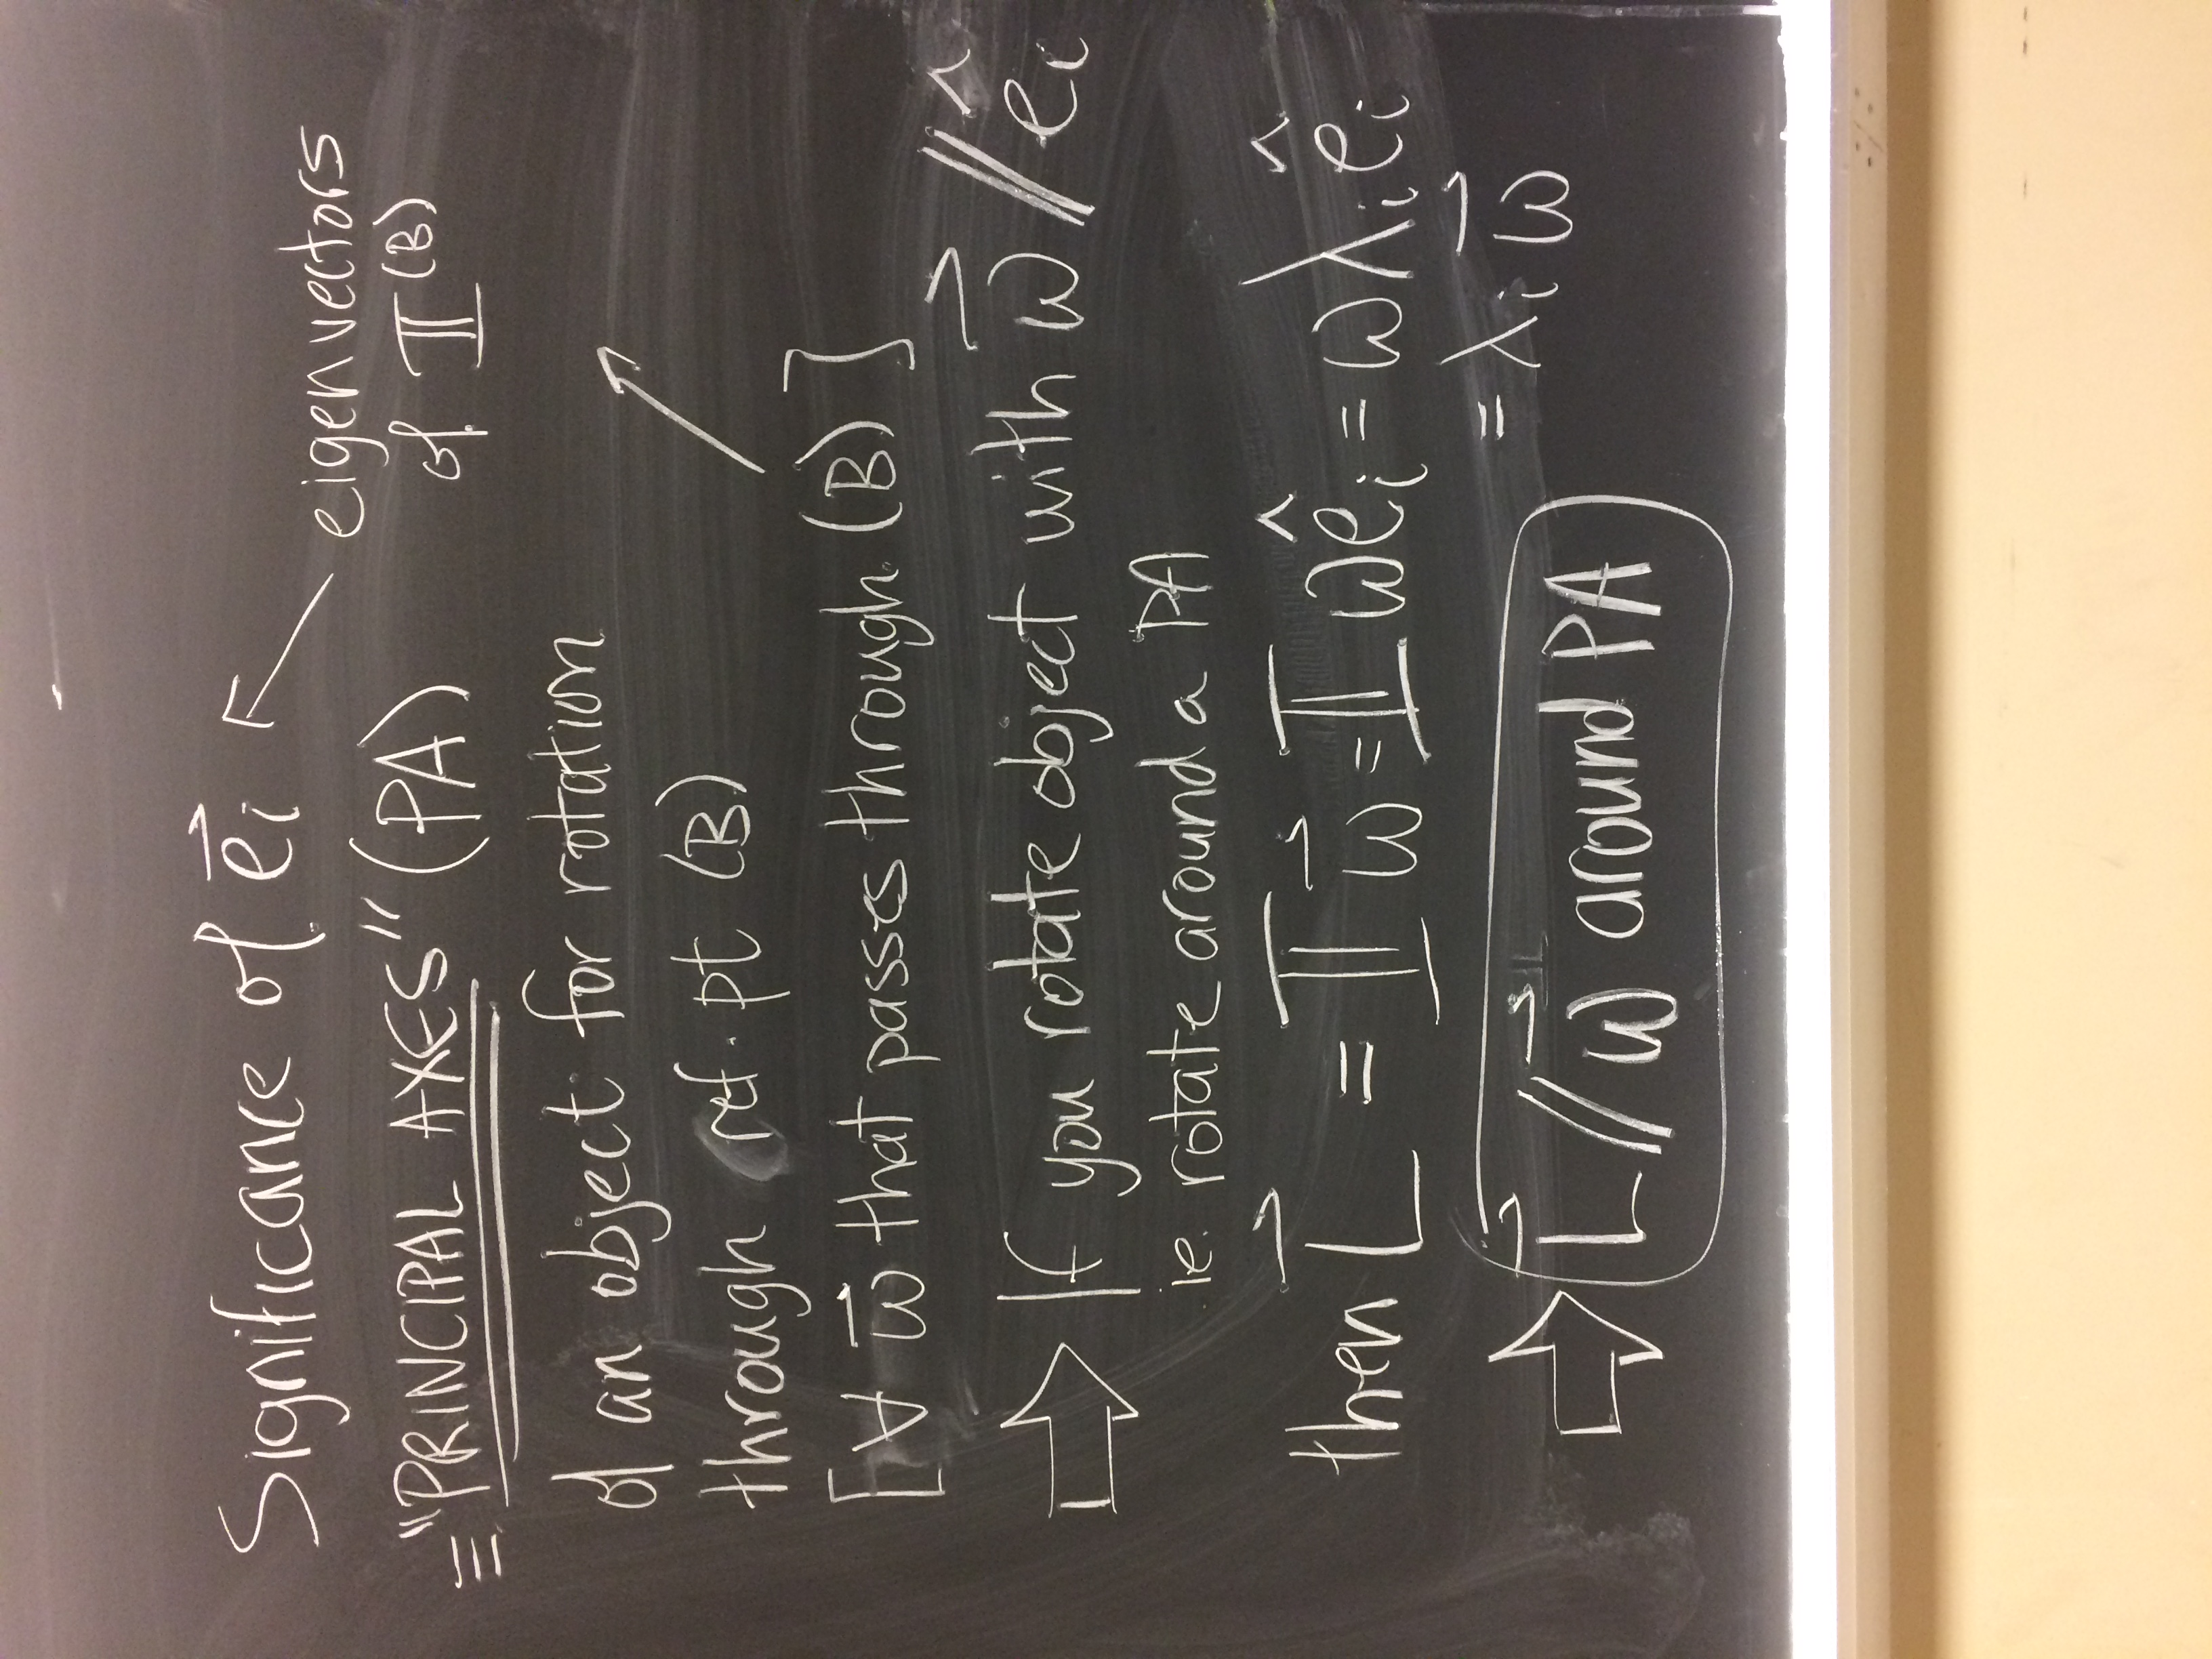 Significance of e⃗i ← eigenvectors of 𝕀(B)
≡ "PRINCIPAL AXES" (PA)
of an object for rotation
through ref. pt (B)
[∀ ω⃗ that passes through (B)]
⇒ If you rotate object with ω⃗ // êi
ie. rotate around a PA
then L⃗ = 𝕀 ω⃗ = 𝕀 ωêi = ωλiêi
= λiω⃗
⇒ L⃗ // ω⃗ around PA